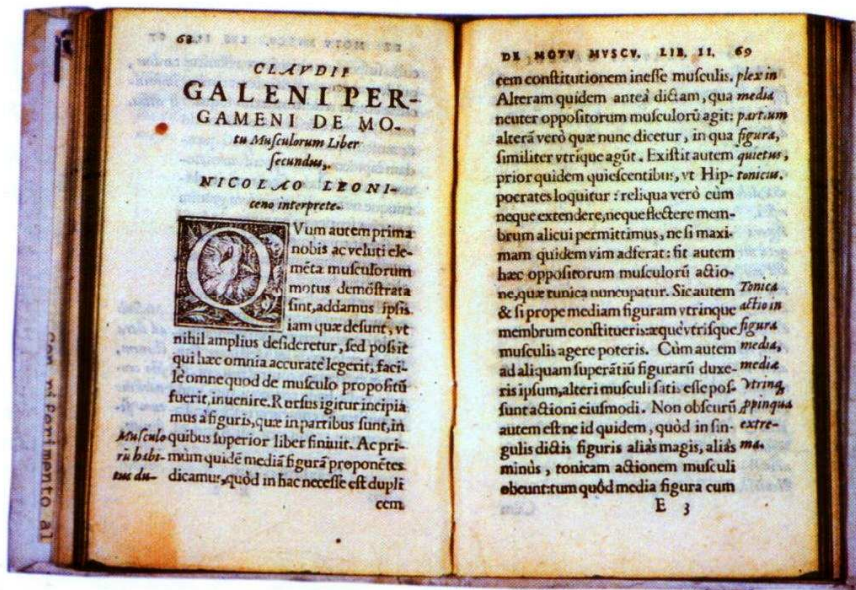 68
CLAVDII
GALENI PER-
GAMENI DE MO-
tu Musculorum Liber
secundus,
NICOLAO LEONI-
ceno interprete.
QVum autem prima
nobis ac veluti ele-
mēta musculorum
motus demōstrata
sint, addamus ipsis
iam quæ desunt, vt
nihil amplius desideretur, sed possit
qui hæc omnia accuratè legerit, faci-
lè omne quod de musculo propositū
fuerit, inuenire. Rursus igitur incipia
mus à figuris, quæ in partibus sunt, in
quibus superior liber finiuit. Ac pri-
mùm quidē mediā figurā proponētes
dicamus, quòd in hac necesse est dupli
cem
Musculo
rū habi-
tus du-
DE MOTV MVSCV. LIB. II. 69
cem constitutionem inesse musculis.
Alteram quidem anteà dictam, qua
neuter oppositorum musculorū agit:
alterā verò quæ nunc dicetur, in qua
similiter vtrique agūt. Existit autem
prior quidem quiescentibus, vt Hip-
pocrates loquitur: reliqua verò cùm
neque extendere, neque flectere mem-
brum alicui permittimus, ne si maxi-
mam quidem vim adferat: fit autem
hæc oppositorum musculorū actio-
ne, quæ tunica nuncupatur. Sic autem
& si prope mediam figuram vtrinque
membrum constitueris: æquè vtrisque
musculis agere poteris. Cùm autem
ad aliquam superātiū figurarū duxe-
ris ipsum, alteri musculi satis esse pos-
sunt actioni eiusmodi. Non obscurū
autem est ne id quidem, quòd in sin-
gulis dictis figuris aliàs magis, aliàs
minùs, tonicam actionem musculi
obeunt: tum quòd media figura cum
E 3
plex in
media
partium
figura,
quietus,
tonicus.
Tonica
actio in
figura
media,
mediæ
vtrinq
ppinqua
extre-
ma.
Con riferimento al